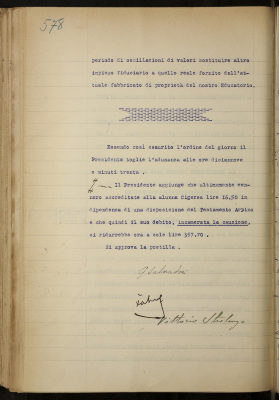 578
periodo di oscillazioni di valori sostituire altro
impiego fiduciario a quello reale fornito dall'at-
tuale fabbricato di proprietà del nostro Educatorio.
Essendo così esaurito l'ordine del giorno il
Presidente toglie l'adunanza alle ore diciannove
e minuti trenta .
Il Presidente aggiunge che ultimamente ven-
nero accreditate alla alunna Cigersa lire 16,50 in
dipendenza di una disposizione del Testamento Appino
e che quindi il suo debito, incamerata la cauzione,
si ridurrebbe ora a sole lire 397,70 .
Si approva la postilla .
Vittorio